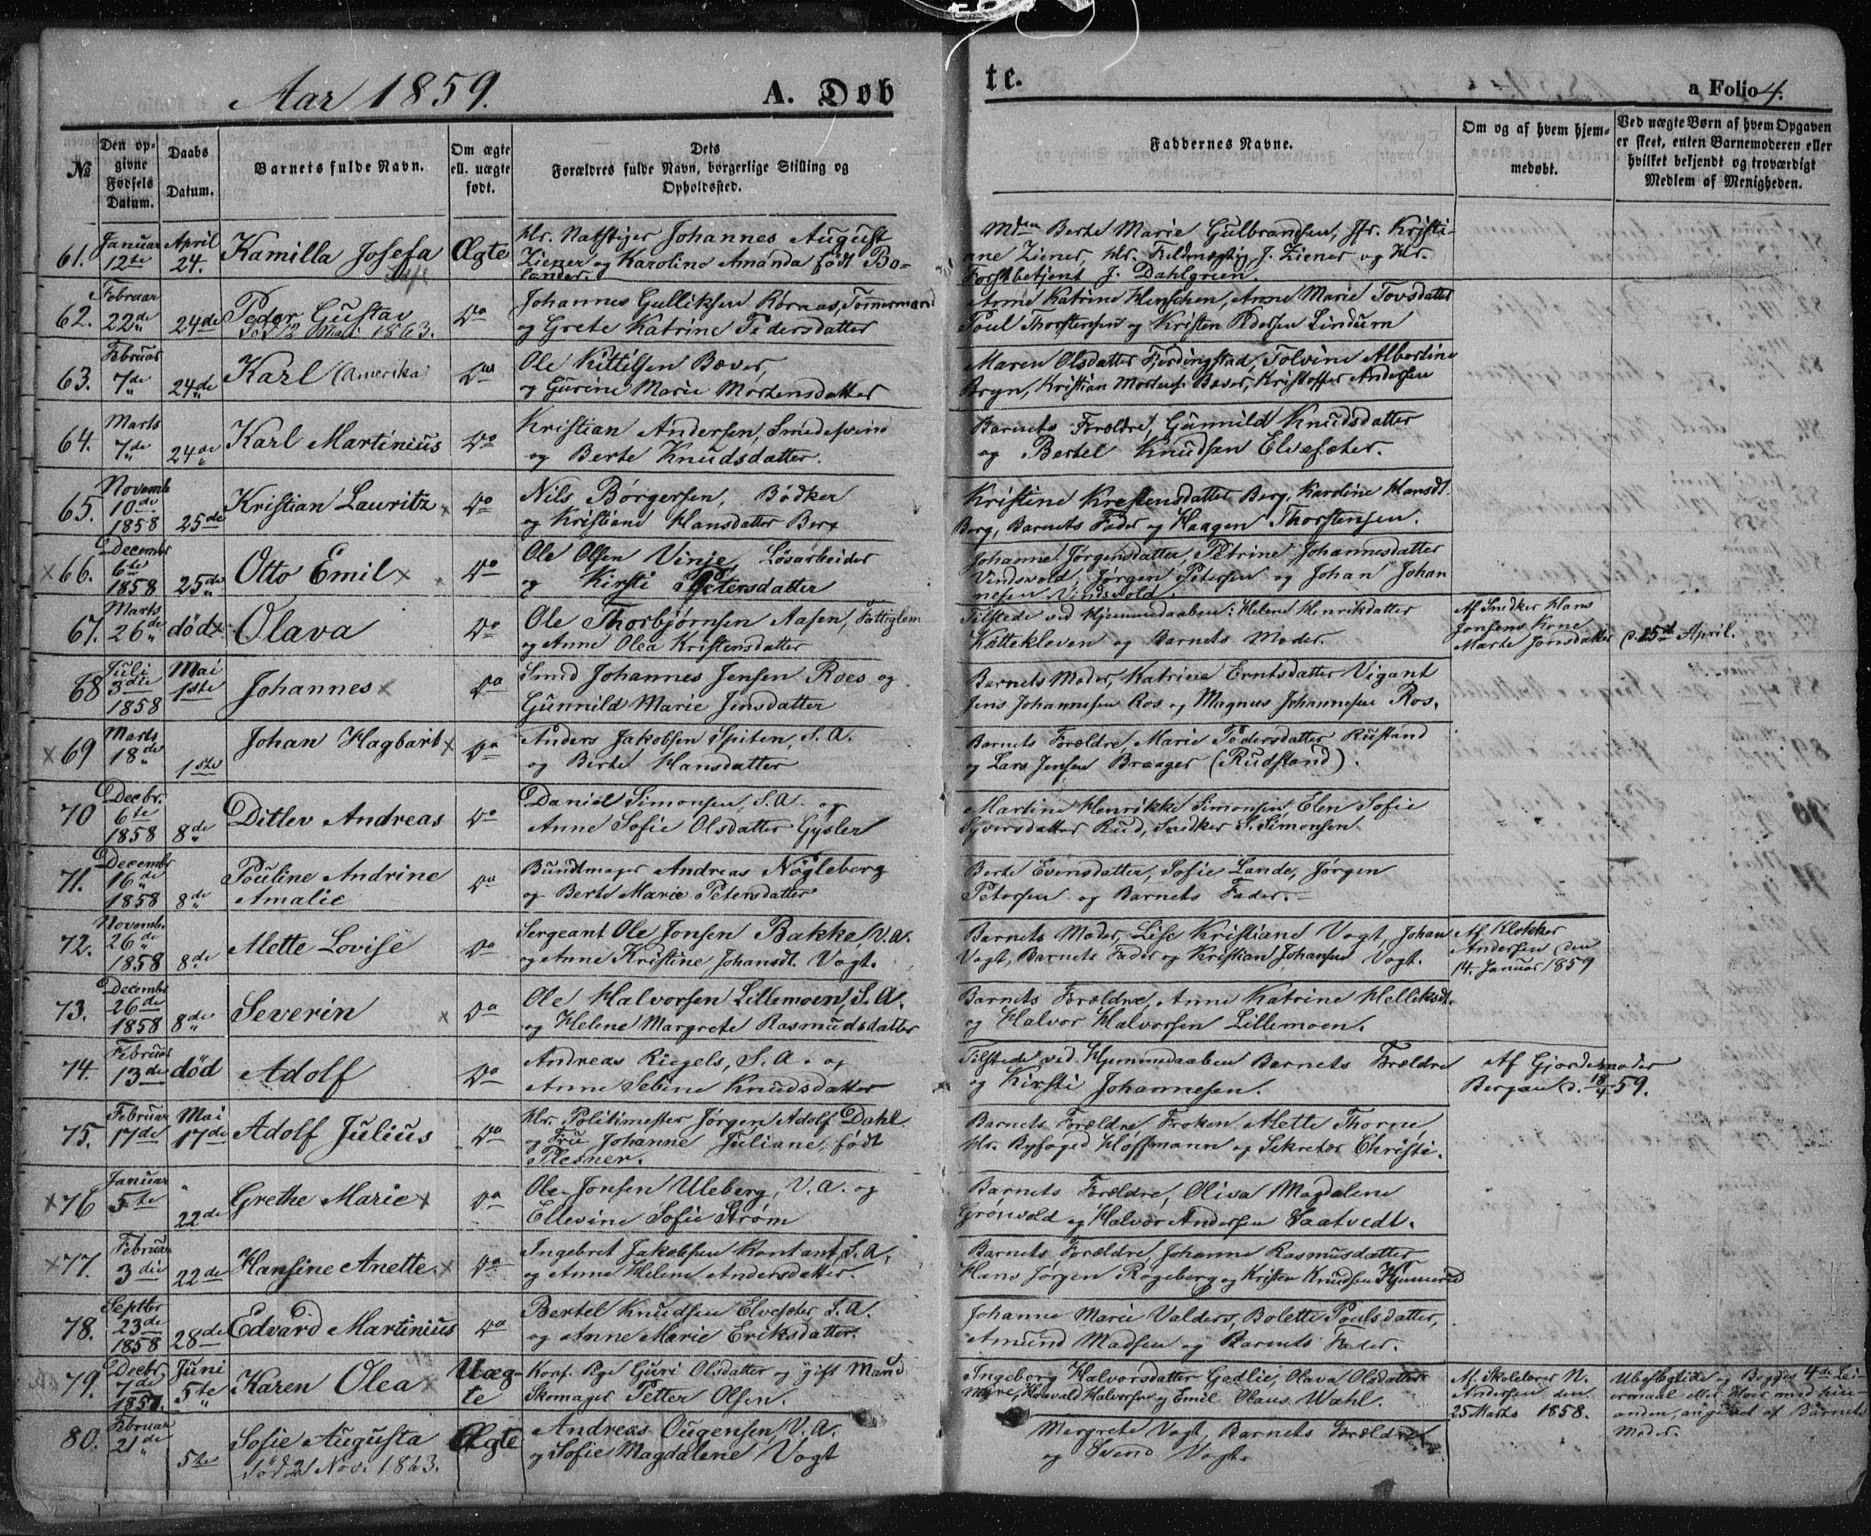 Aar 1859.
A. Døb
te.
a Folio 4.
№
Den op-
givne
Fødsels
Datum.
Daabs
Datum.
Barnets fulde Navn.
Om ægte
ell. uægte
født.
Dets
Forældres fulde Navn, borgerlige Stilling og
Opholdssted.
Faddernes Navne.
Om og af hvem hjem-
medøbt.
Ved uægte Børn af hvem Opgaven
er skeet, enten Barnemoderen eller
hvilket bekjendt og troværdigt
Medlem af Menigheden.
61. Januar 12te April 24. Kamilla Josefa Ægte
Johannes August
Ziener og Karoline Amanda født Bo-
lander
Berte Marie Gulbrandsen, Jfr. Kristi-
ane Ziener, Hr. Fuldmægtig J. Ziener og Hr.
Forstbetjent J. Dahlgreen
62. Februar 22de 24de Peder Gustav Do
Død 2 Mai 1863.
Johannes Gulliksen Røraas, Tømmermand
og Grete Katrine Pedersdatter
Anne Katrine Henschen, Anne Marie Tovsdatter
Poul Thorstensen og Kristen Pedersen Lindum
63. Februar 7de 24de Karl (Amerika) Do
Ole Kittilsen Bæver,
og Gurine Marie Mortensdatter
Maren Olsdatter Fordingstad, Tolvine Albertine
Bryn, Kristian Mortens. Bæver, Kristoffer Andersen
64. Marts 7de 24de Karl Martinius Do
Kristian Andersen, Smedesvend
og Berte Knudsdatter.
Barnets Forældre, Gunnild Knudsdatter
og Bertel Knudsen Elvesæter.
65. Novemb. 10de 1858 25de Kristian Lauritz x Do
Nils Børgersen, Bødker
og Kristiane Hansdatter Berg
Kristine Krestensdatter Berg, Karoline Hansdt.
Berg, Barnets Fader og Haagen Thorstensen.
x 66. Decembr 6te 1858 25de Otto Emil x Do
Ole Olsen Vinje, Løsarbeider
og Kirsti Petersdatter
Johanne Jørgensdatter, Petrine Johannesdatter
Vindsvold, Jørgen Petersen og Johan Johan
nesen Vindsvold.
67. Marts 26de død x Olava Do
Ole Thorbjørnsen Aasen, Fattiglem
og Anne Olea Kristensdatter
Tilstede ved Hjemmedaaben: Helene Henriksdatter
Kattekleven og Barnets Moder.
Af Snedker Hans
Jonsens Kone
Marte Jonsdatter d. 25de April.
68 Juli 3die 1858 Mai 1ste Johannes x Do
Smed Johannes Jensen Roes og
Gunnild Marie Jensdatter
Barnets Moder, Katrine Erntsdatter Vigant
Jens Johannesen Ros og Magnus Johannesen Ros.
x 69 Marts 18de 1ste Johan Hagbart x Do
Anders Jakobsen Spiten, S.A.
og Berte Hansdatter
Barnets Forældre, Marie Pedersdatter Rustand
og Lars Jensen Braager (Rudstand).
70 Decbr. 6te 1858 8de Ditlev Andreas Do
Daniel Simonsen, S.A. og
Anne Sofie Olsdatter Gysler
Martine Henrikke Simonsen, Elen Sofie
Syversdatter Rud, Snedker S. Simonsen.
71. Decembr 16de 1858 8de Pouline Andrine Do
Amalie
Bundtmager Andreas Nøgleberg
og Berte Marie Petersdatter
Berte Evensdatter, Sofie Lande, Jørgen
Petersen og Barnets Fader.
72. Novemb. 26de 1858 8de Mette Lovise Do
Sergeant Ole Jonsen Bakke, V.A.
og Anne Kristine Johansdt. Vogt.
Barnets Moder, Lise Kristiane Vogt, Johan
Vogt, Barnets Fader og Kristian Johansen Vogt.
Af Klokker
Andersen den
14. Januar 1859
73. Decembr 26de 1858 8de Severin x Do
Ole Halvorsen Lillemoen, S.A.
og Helene Margrete Rasmudsdatter
Barnets Forældre, Anne Katrine Helliksdt.
og Halvor Halvorsen Lillemoen.
74. Februar 13de død Adolf Do
Andreas Riegels, S.A. og
Anne Seline Knudsdatter
Tilstede ved Hjemmedaaben Barnets Forældre
og Kirsti Johannesen.
Af Gjordemoder
Bergan d. 18/4 59.
75. Februar 17de Mai 17de Adolf Julius Do
Hr. Politimester Jørgen Adolf Dahl
og Fru Johanne Juliane, født
Plesner.
Barnets Forældre, Frøken Mette Thorne
Hr. Byfoged Hoffmann og Sekretær Christi.
x 76 Januar 5te 22de Grethe Marie x Do
Ole Jonsen Uleberg, V.A. og
Ellevine Sofie Strøm
Barnets Forældre, Oliva Magdalene
Grønvold og Halvor Andersen Saatvedt.
x 77. Februar 3die 22de Hansine Anette x Do
Ingebret Jakobsen Kontant, S.A.
og Anne Helene Andersdatter.
Barnets Forældre, Johanne Rasmusdatter
Hans Jørgen Røgeberg og Kristen Knudsen Hjemmerud
78. Septbr 23de 1858 28de Edvard Martinius Do
Bertel Knudsen Elvesæter S.A.
og Anne Marie Eriksdatter.
Johanne Marie Valders, Bolette Poulsdatter,
Amund Madsen og Barnets Fader.
79. Decbr. 7de 1857. Juni 5te Karen Olea x Uæg-
te
Korf. Pge Guri Olsdatter og gift Mand
Skomager Petter Olsen.
Ingeborg Halvorsdatter Gadlie, Olava Olsdatter
Myre, Havald Halvorsen og Emil Olaus Wahl.
Af Skolelærer N.
Andersen den
25 Marts 1858.
Ubefæstede og Begges 4de Lei-
ermaal eller Hoer med hin-
anden, angivet af Barnets
Moder.
80. Februar 21de 5te Sofie Augusta Ægte
Død 21 Nov. 1863.
Andreas Ougensen, V.A.
og Sofie Magdalene Vogt
Margrete Vogt, Barnets Forældre
og Svend Vogt.